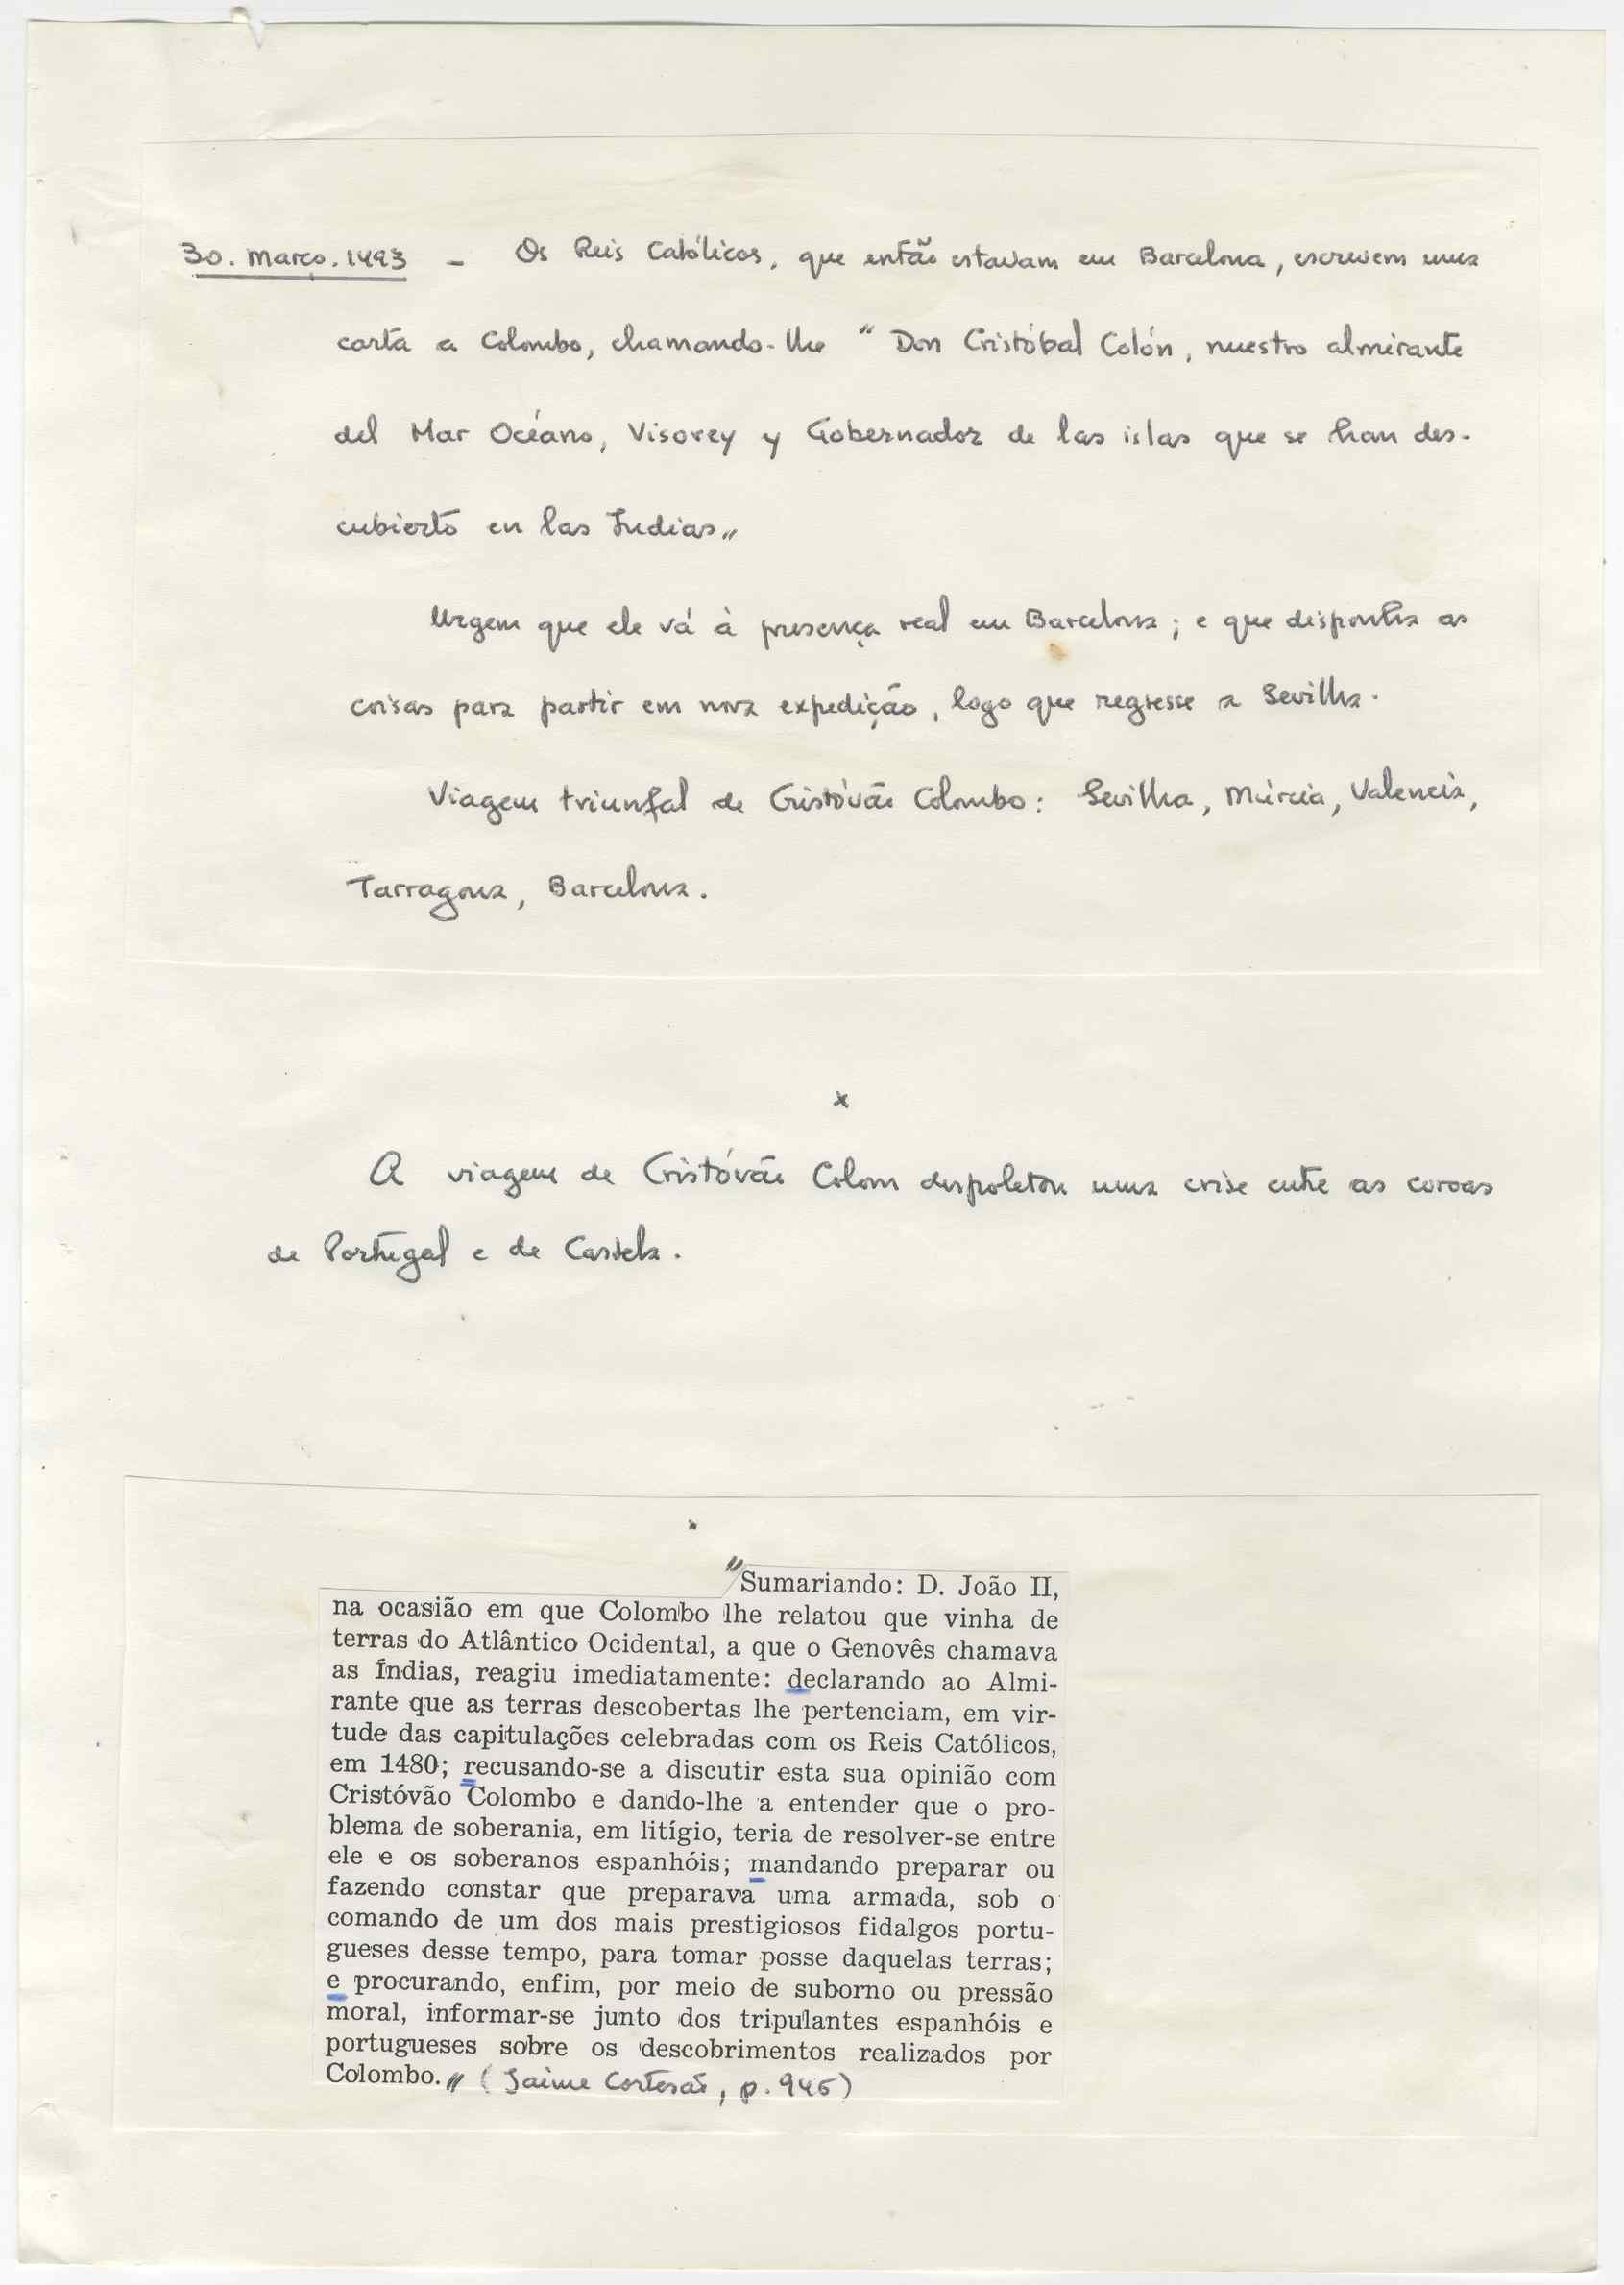 30. Março. 1493 - Os Reis Católicos, que então estavam em Barcelona, escrevem uma
carta a Colombo, chamando-lhe "Don Cristóbal Colón, nuestro almirante
del Mar Océano, Visorey y Gobernador de las islas que se han des-
cubierto en las Indias"
Urgem que ele vá à presença real em Barcelona; e que disponha as
coisas para partir em nova expedição, logo que regresse a Sevilha.
Viagem triunfal de Cristóvão Colombo: Sevilha, Múrcia, Valencia,
Tarragona, Barcelona.
x
A viagem de Cristóvão Colom despoletou uma crise entre as coroas
de Portugal e de Castela.
"Sumariando: D. João II,
na ocasião em que Colombo lhe relatou que vinha de
terras do Atlântico Ocidental, a que o Genovês chamava
as Índias, reagiu imediatamente: declarando ao Almi-
rante que as terras descobertas lhe pertenciam, em vir-
tude das capitulações celebradas com os Reis Católicos,
em 1480; recusando-se a discutir esta sua opinião com
Cristóvão Colombo e dando-lhe a entender que o pro-
blema de soberania, em litígio, teria de resolver-se entre
ele e os soberanos espanhóis; mandando preparar ou
fazendo constar que preparava uma armada, sob o
comando de um dos mais prestigiosos fidalgos portu-
gueses desse tempo, para tomar posse daquelas terras;
e procurando, enfim, por meio de suborno ou pressão
moral, informar-se junto dos tripulantes espanhóis e
portugueses sobre os descobrimentos realizados por
Colombo." (Jaime Cortesão, p. 945)